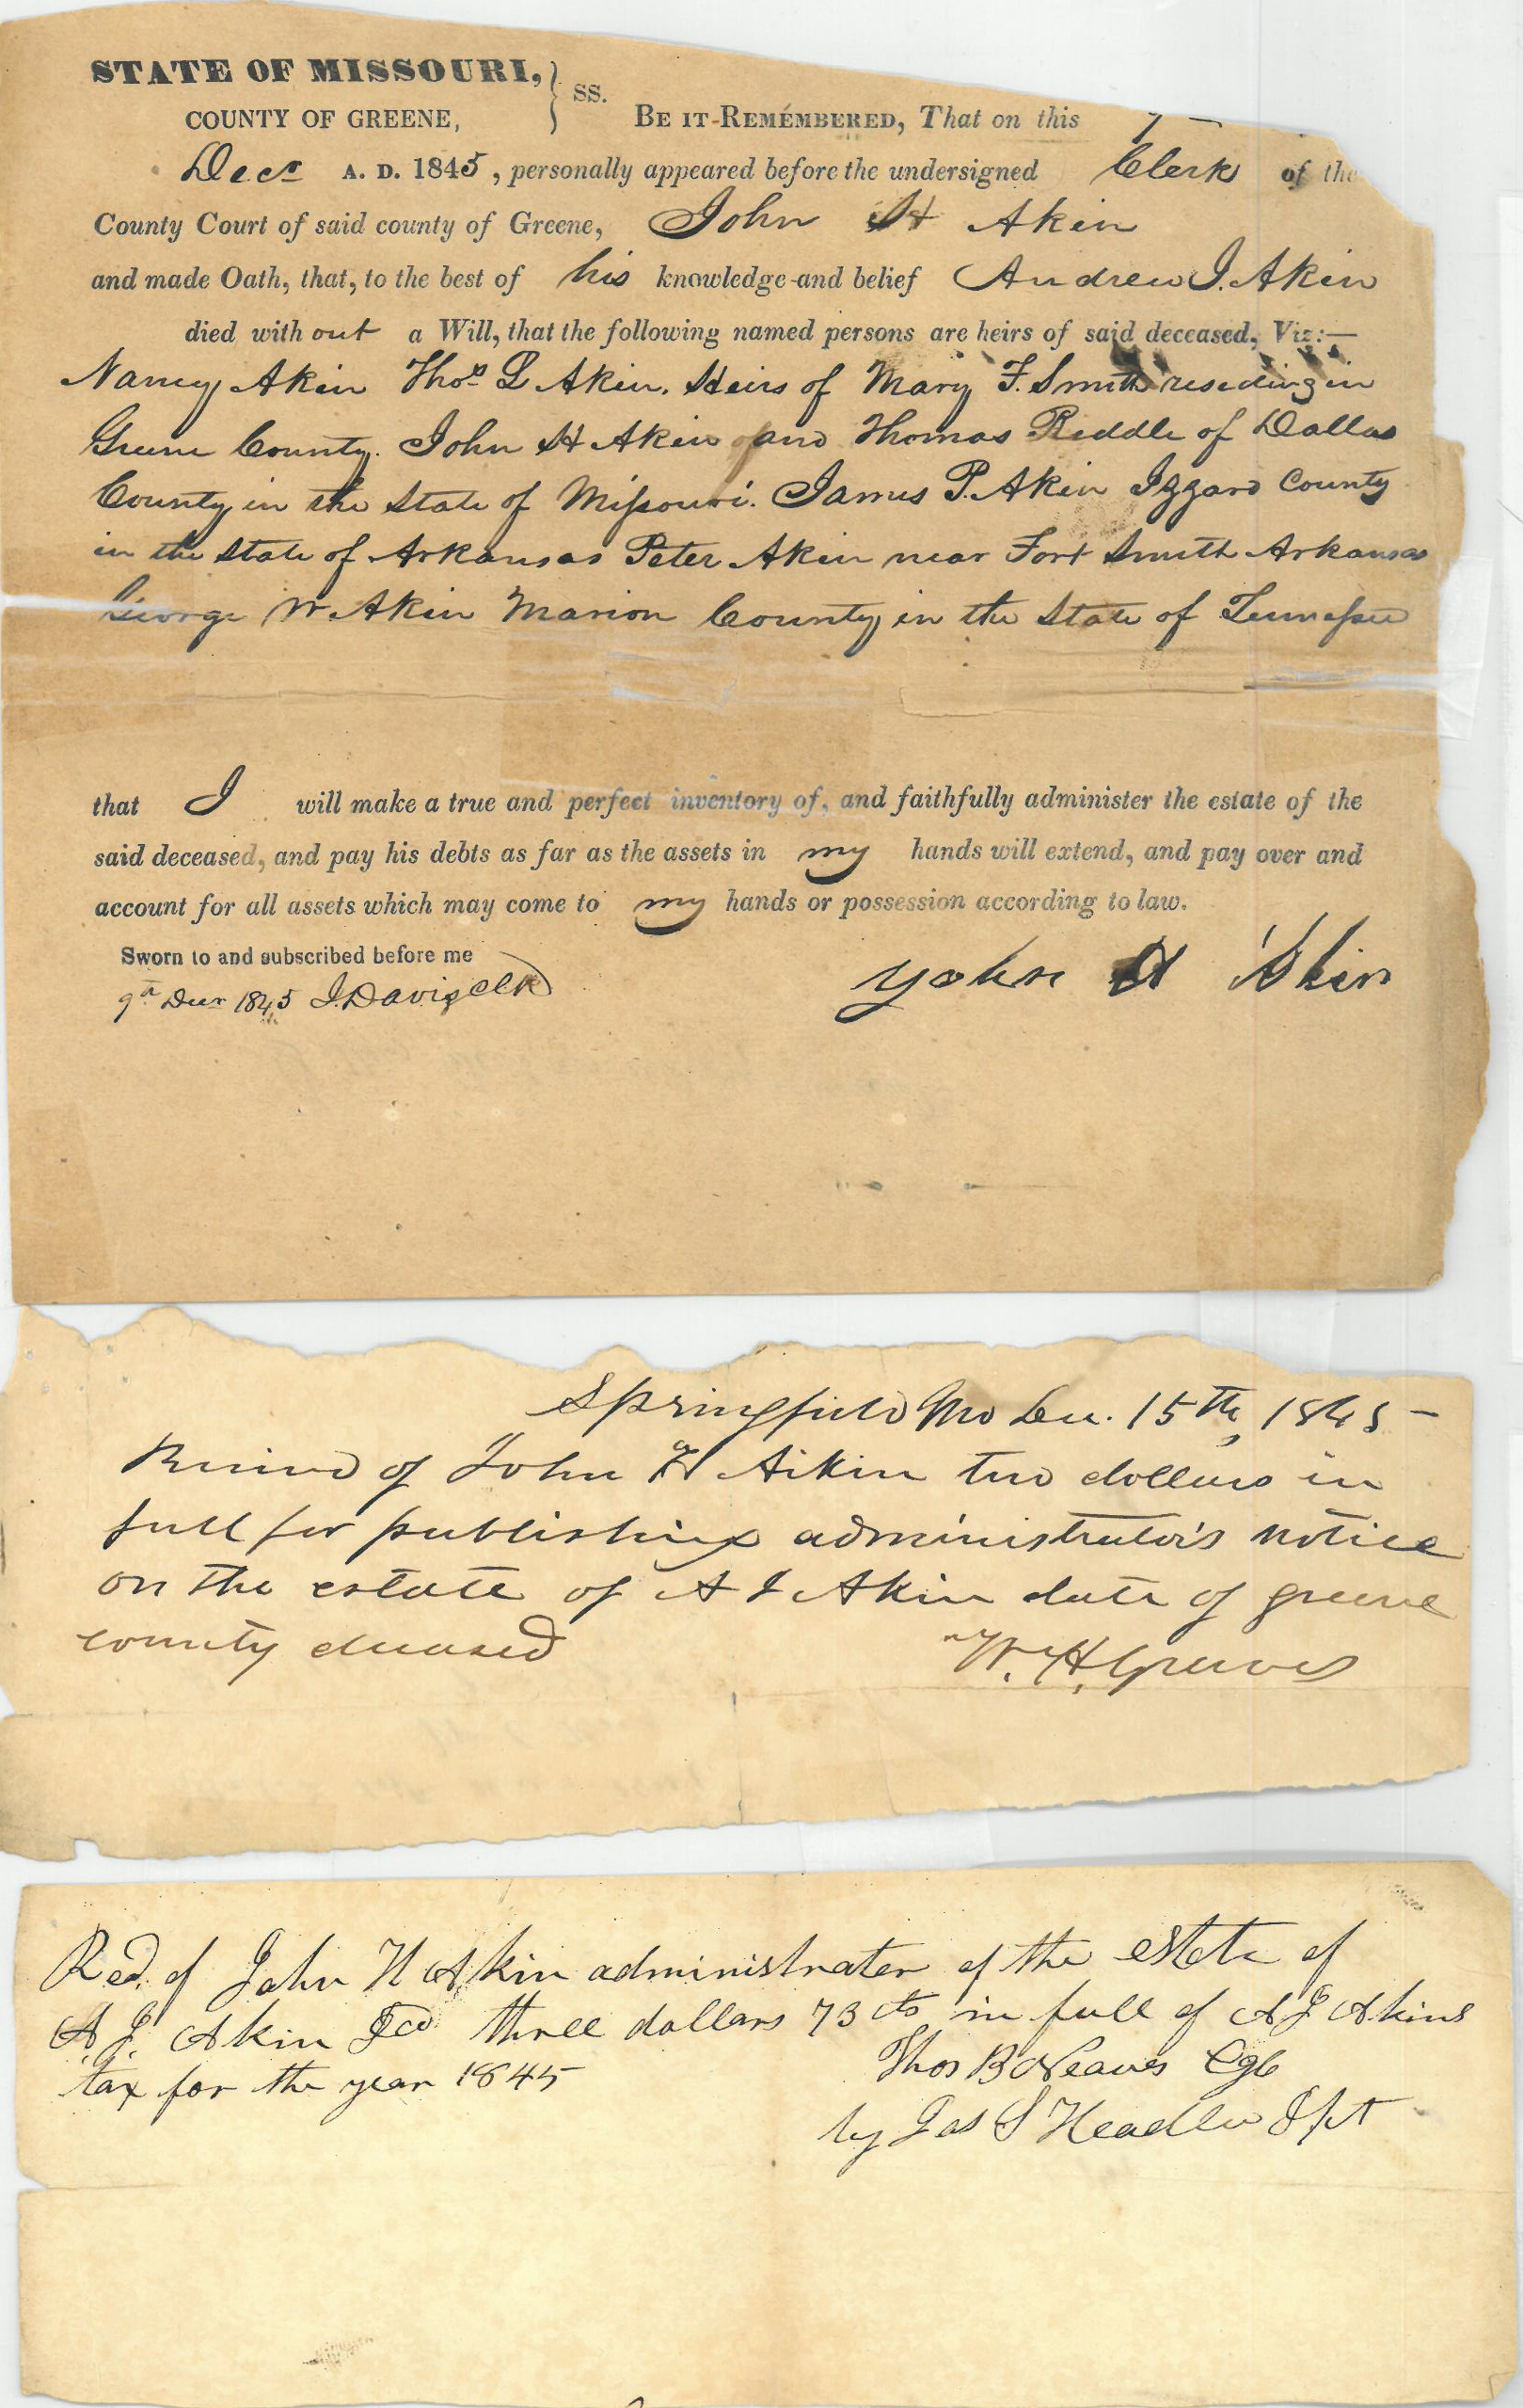 STATE OF MISSOURI, } ss.
COUNTY OF GREENE, BE IT REMEMBERED, That on this
Decr A. D. 1845, personally appeared before the undersigned Clerk of the
County Court of said county of Greene, John H Akin
and made Oath, that, to the best of his knowledge and belief Andrew J. Akin
died without a Will, that the following named persons are heirs of said deceased, Viz:—
Nancy Akin Thos L Akin. Heirs of Mary F. Smith residing in
Greene County. John H Akin and Thomas Riddle of Dallas
County in the State of Missouri. James P. Akin Izzard County
in the State of Arkansas Peter Akin near Fort Smith Arkansas
George W Akin Marion County in the State of Tennessee
that I will make a true and perfect inventory of, and faithfully administer the estate of the
said deceased, and pay his debts as far as the assets in my hands will extend, and pay over and
account for all assets which may come to my hands or possession according to law.
Sworn to and subscribed before me
9th Decr 1845 J. Davis Clk
John H Akin
Springfield Mo Dec. 15th, 1845 -
Received of John H Aikin two dollars in
full for publishing administrator's notice
on the estate of A J Akin late of greene
county deceased W. H. Graves
Recd. of John H Akin administrater of the estate of
A. J. Akin Decd three dollars 73 cts in full of A J Akins
tax for the year 1845 Thos B Neaves
by Jas S Headlee Dpt